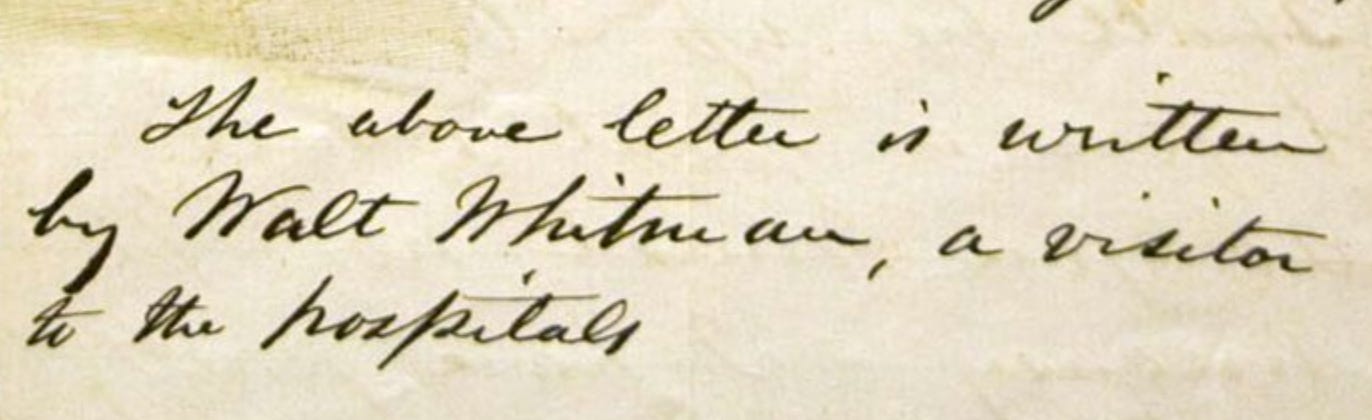 The above letter is written
by Walt Whitman, a visitor
to the hospitals